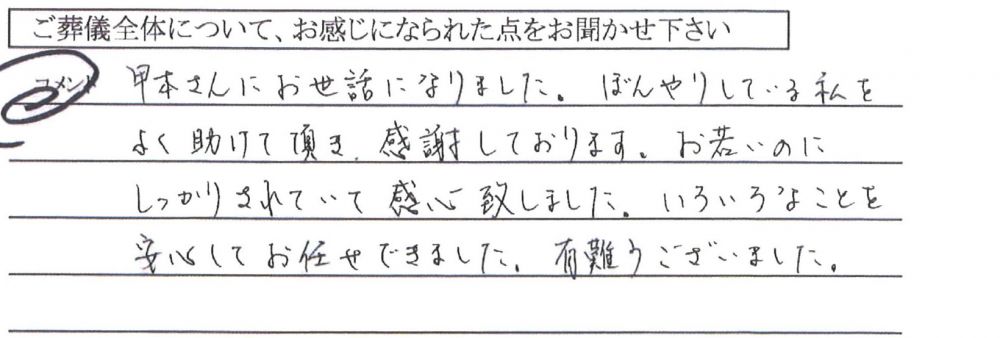 ご葬儀全体について、お感じになられた点をお聞かせ下さい
コメント 甲本さんにお世話になりました。ぼんやりしている私を
よく助けて頂き、感謝しております。お若いのに
しっかりされていて感心致しました。いろいろなことを
安心してお任せできました。有難うございました。